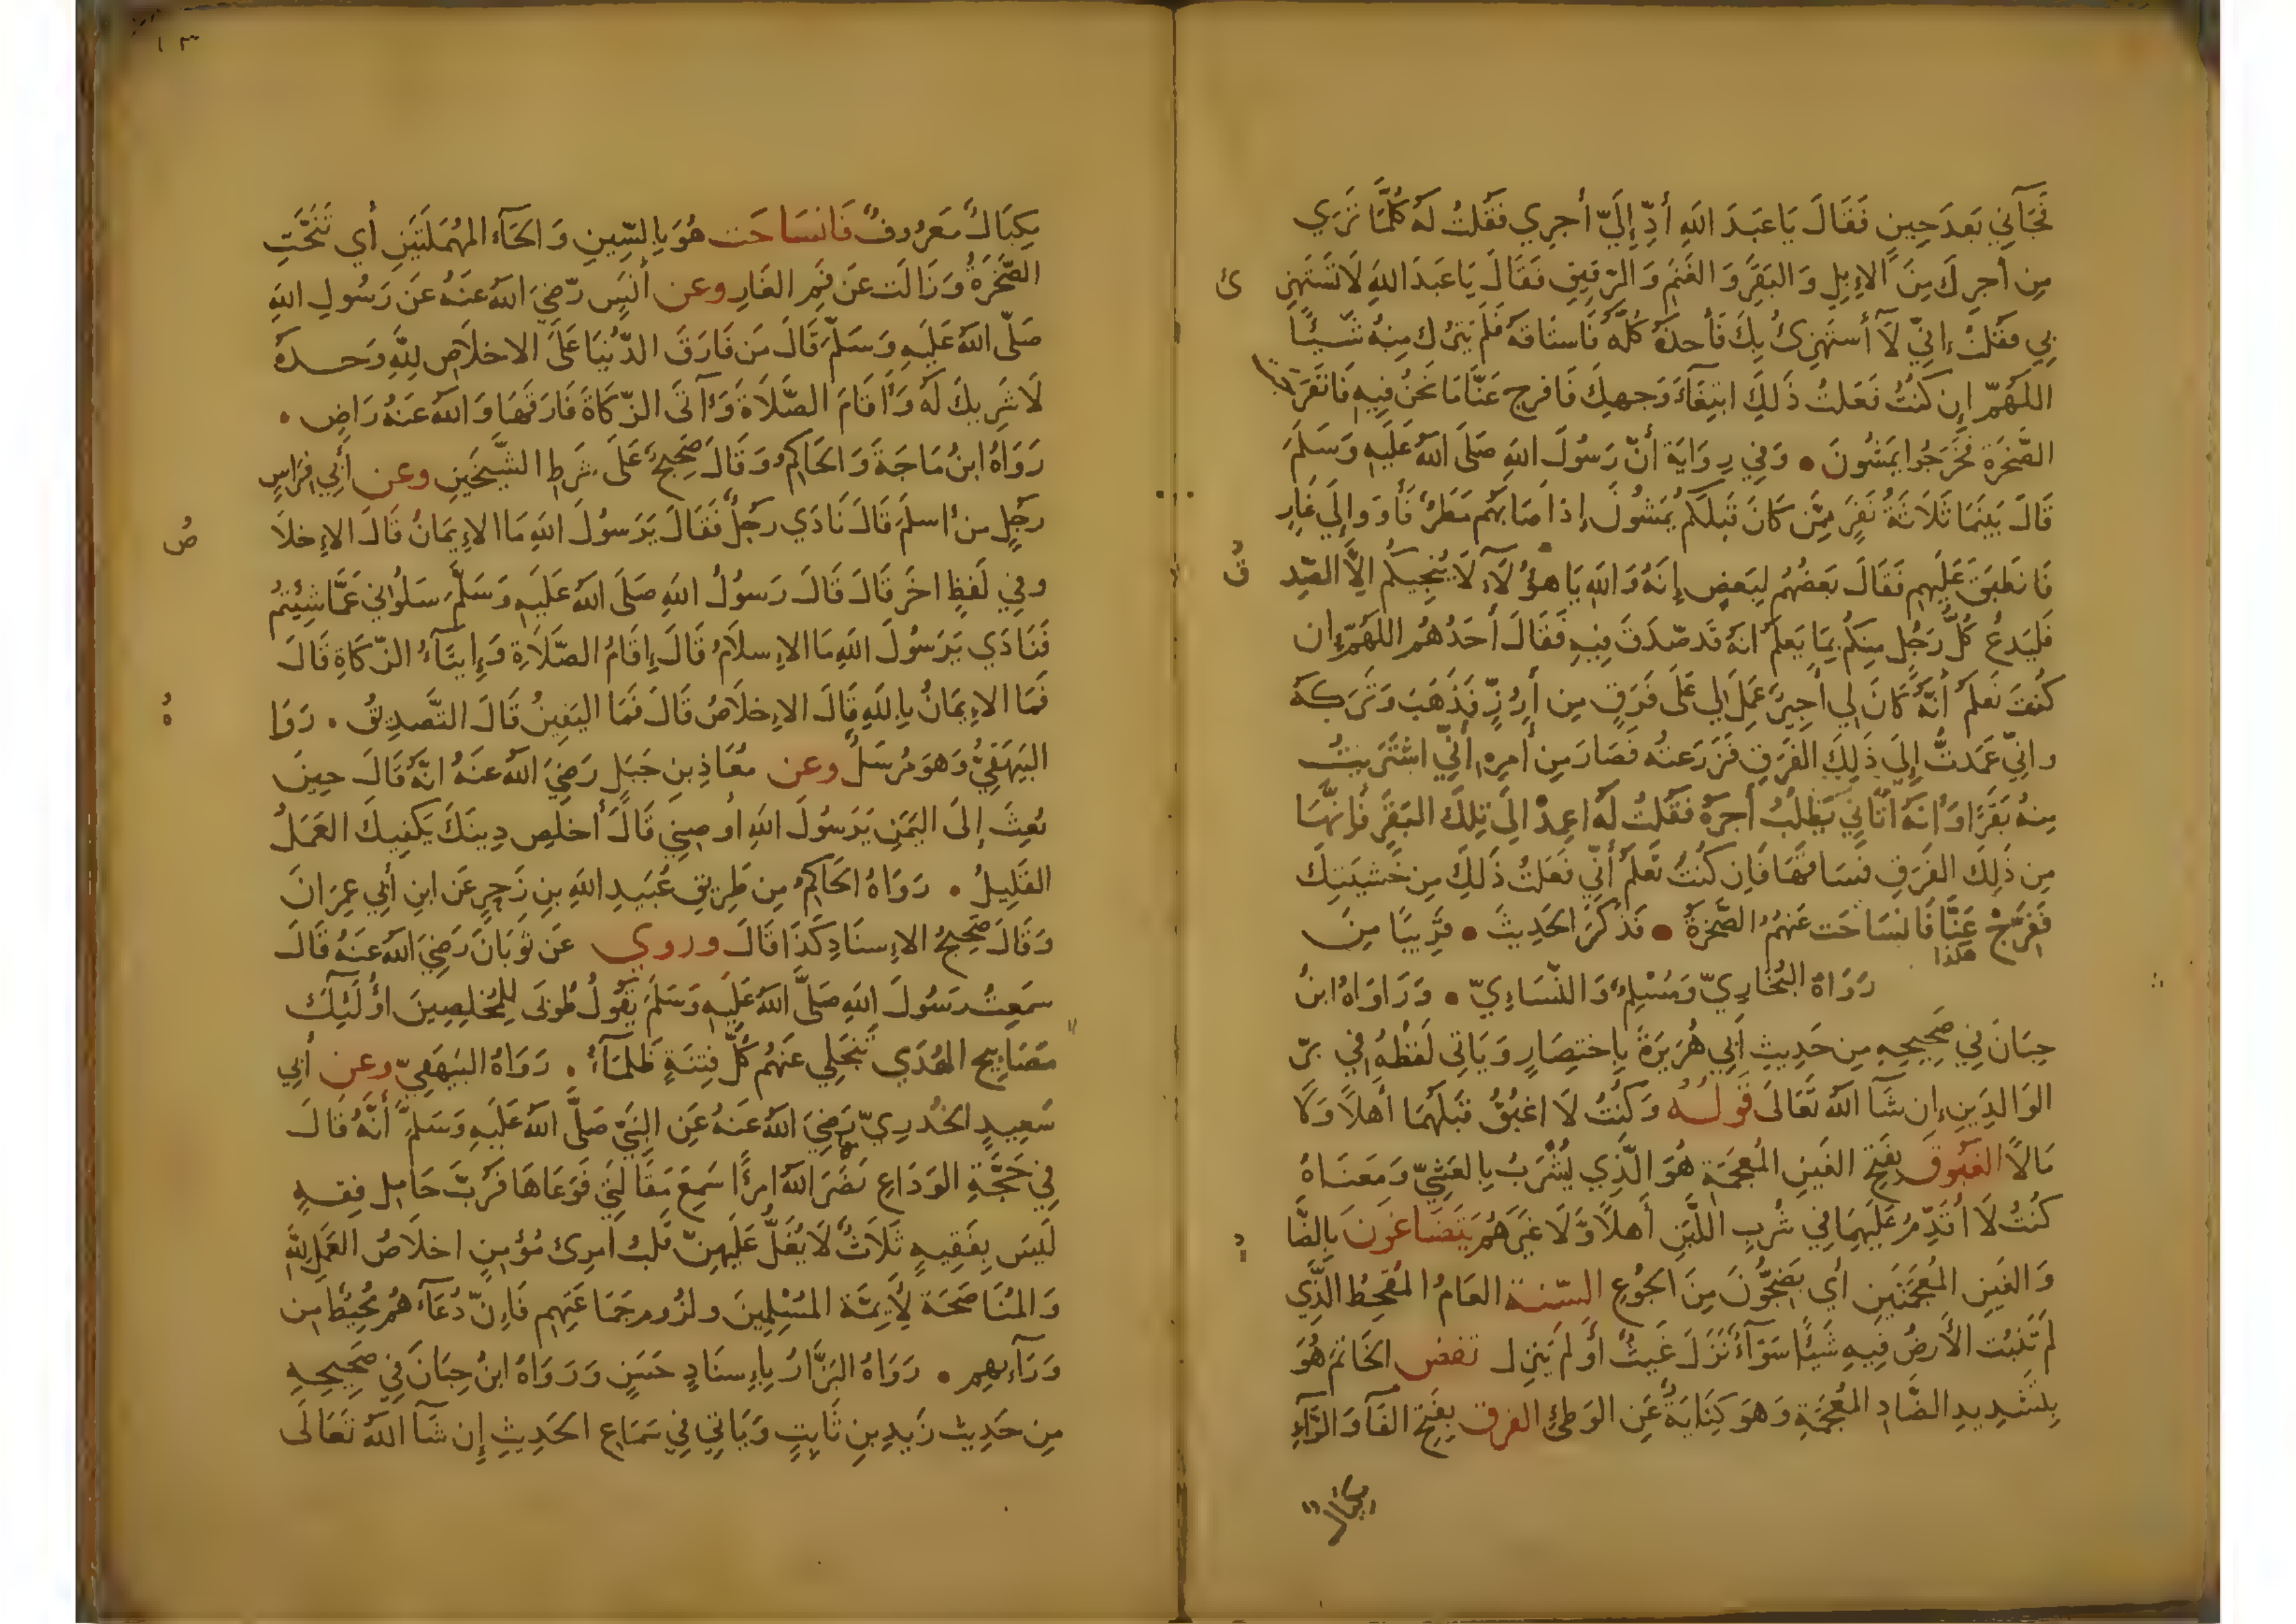 فَجَآنِي بَعدَ حِينٍ فَقَالَ يَا عَبدَ اللّهِ أدِّ إِلَيّ أجرِي فقُلتُ لَهُ كُلَّمَا تَرَي
مِن أجرِكَ مِنَ الاِبِلِ وَالبَقَرِ وَالغَنَمِ وَالرّقيقِ فَقَالَ يَا عَبدَ اللّهِ لَا تَستَهزِ ئ
بِي فقُلتُ إنّي لَآ أستَهزِئُ بِكَ فَأخذَهُ كُلَّهُ فَاستَاقَهُ فَلَم يَترُك مِنهُ شَيئًا
اللّهُمّ إِن كُنتُ فَعَلتُ ذَلِكَ ابتِغَآءَ وَجهِكَ فَافرج عَنَّا مَا نَحنُ فِيهِ فَانفَرَجَت
الصَّخرَة فَخَرَجُوا يَمشُونَ • وَفِي رِوَايَة أنّ رَسُولَ اللّهِ صَلَّى اللّهُ عَلَيهِ وَسَلَّمَ
قَالَ بَينَمَا ثَلَاثَةُ نَفَرٍ مِمَّن كَانَ قَبلَكُم يَمشُونَ إذ اَصَابَهُم مَطَرٌ فَأوَوا إِلَي غَارٍ
فَانطَبَقَ عَلَيهِم فَقَالَ بَعضُهُم لِبَعضٍ إِنَّهُ وَاللّهِ يَا هؤُلَآءِ لَا يُنجِيكُم إلَّا الصّدِ قُ
فَليَدعُ كُلُّ رَجُلٍ مِنكُم بِمَا يَعلَمُ انّهُ قَد صّدَقَ فِيهِ فَقَالَ أحَدُهُم اللّهُمّ إِن
كُنتَ تَعلَمُ أنَّهُ كَانَ لِي أجِيرٌ عَمِلَ لِي عَلَى فَرَقٍ مِن أَرُزٍّ فَذَهَبَ وَتَرَكَهُ
وانِّي عَمَدتُّ إِلَي ذَلِكَ الفَرَقِ فَزَرَعتُهُ فَصَارَ مِن أمرِهِ أنِّي اشتَرَيتُ
مِنهُ بَقَرًا وَأنّهُ اتَانِي يَطلُبُ أجرَهُ فَقُلتُ لَهُ اعمِدْ الَي تِلكَ البَقَرِ فَإنَّهَا
مِن ذَلِكَ الفَرَقِ فَسَاقَهَا فَاِن كُنتَ تَعلَمُ أنِّي فَعَلتُ ذَلِكَ مِن خَشيَتِكَ
فَفَرّجْ عَنَّا فَانسَاحَت عَنهُم الصَّخرَةُ • فَذَكَرَ الحَدِيثَ • قَرِيبًا مِنَ
هكذا
رَوَاهُ البُخَارِيّ وَمُسْلِمٌ وَالنّسَاءِيّ • وَرَوَاهُ ابنُ
حِبَانَ فِي صَحِيحِهِ مِن حَدِيثِ أَبِي هُرَيرَةَ بِاختِصَارٍ وَيَاتِي لَفظُهُ فِي برّ
الوَالدَينِ إن شَآ اللّهُ تَعَالَى قَولُهُ وَكُنتُ لَا اغبُقُ قَبلَهُمَا أهلًا وَلَا
مَالًا الغبُوقَ بِفَتحِ الغَينِ المُعجَمَةِ هُوَ الّذِي يُشْرَبُ بِالعَشِيّ وَمَعنَاهُ
كُنتُ لَا أقَدِّمُ عَلَيهِمَا فِي شُربِ اللَّبَنِ أهلًا وَّلَا غَيرَهُم يَتَضَاغَونَ بِالضَّا د
وَالغَينِ المُعجَمَتَينِ أي يَضِجُّونَ مِنَ الجُوعِ السّنة العَامُ المُقحِطُ الّذِي
لَم تُنبُت الأَرضُ فِيهِ شَيئًا سَوَآءٌ نَزَلَ غَيثٌ أَو لَم يَنزِل تفض الخَاتَمَ هُوَ
بِتَشدِيدِ الضَّادِ المُعجَمَةِ وَهوَ كِنَايَةٌ عَنِ الوَطئِ الفرق بِفَتحِ الفَآ وَالرَّآءِ
مِكيَالٌ
١٣
مِكيَالٌ مَعرُوفٌ فَانسَاحَت هُوَ بِالسِّينِ وَالحَآءِ المُهمَلَتَينِ أي تَنَحَّتِ
الصَّخرَةُ وَزَالَت عَن فَمِ الغَارِ وعن أنَسٍ رّضِيَ اللّهُ عَنهُ عَن رَسُولِ اللّهِ
صَلّى اللّهُ عَلَيهِ وَسَلَّمَ قَالَ مَن فَارَقَ الدُّنيَا عَلَى الاخلَاصِ لِلّهِ وَحدَهُ
لَا شَرِيكَ لَهُ وَأَقَامَ الصَّلَاةَ وَآتَى الزّكَاةَ فَارَقَهَا وَاللّهُ عَنهُ رَاضٍ •
رَوَاهُ ابنُ مَاجَةَ وَالحَاكِمُ وَقَالَ صَحِيحٌ عَلَى شَرطِ الشَّيخَينِ وعن أَبِي فِرَاسٍ
رجُلٍ مِن اسلَمَ قَالَ نَادَي رَجُلٌ فَقَالَ يَرَسُولَ اللّهِ مَا الاِيمَانُ قَالَ الاِخلَا صُ
وفِي لَفظٍ اخَرَ قَالَ قَالَ رَسُولُ اللّهِ صَلَى اللّهُ عَلَيهِ وَسَلَّمَ سَلُوانِي عَمَّا شِئتُم
فَنَادَي يَرَسُولَ اللّهِ مَا الاِسلَامُ قَالَ إِقَامُ الصَّلَاةِ وَإيتَآءُ الزّكَاةِ قَالَ
فَمَا الاِيمَانُ بِاللّهِ قَالَ الاِخلَاصُ قَالَ فَمَا اليَقِينُ قَالَ التَّصدِيقُ • رَوَا هُ
البَيهَقِيُّ وَهوَ مُرسَلٌ وعن مُعَاذِ بنِ جَبَلٍ رَضِيَ اللّهُ عَنهُ انّهُ قَالَ حِينَ
بُعِثَ إلَى اليَمَنِ يَرَسُولَ اللّهِ أوصِنِي قَالَ أخلِص دِينَكَ يَكفِيكَ العَمَلُ
القَلِيلُ • رَوَاهُ الحَاكِمُ مِن طَرِيقِ عُبَيدِ اللّهِ بنِ زَحرٍ عَن ابنِ أَبِي عِمرَانَ
وَقَالَ صَحِيحُ الاِسنَادِ كَذَا قَالَ وروي عَن ثَوبَانَ رَضِيَ اللّهُ عَنهُ قَالَ
سَمِعتُ رَسُولَ اللّهِ صَلَّى اللّهُ عَلَيهِ وَسَلَّمَ يَقُولُ طُوبَى لِلمُخلِصِينَ أُولَئِكَ
مَصَابِيح الهُدَي تَنجَلِي عَنهُم كُلُّ فِتنَةٍ ظَلمَآءُ • رَوَاهُ البَيهَقِيّ وعن أَبِي
سَعِيدٍ الخُدرِيّ رَضِيَ اللّهُ عَنهُ عَنِ النَّبِيّ صَلَّى اللّهُ عَلَيهِ وَسَلَّمَ أنَّهُ قَالَ
فِي حَجَّةِ الوَدَاعِ نَضَّرَ اللّهُ امرَأً سَمِعَ مَقَالَتِي فَوَعَاهَا فَرُبَّ حَامِلِ فِقهٍ
لَيسَ بِفَقِيهٍ ثَلَاثٌ لَا يُغِلُّ عَلَيهِنّ قَلبُ امرِئ مُؤمِنٍ اخلَاصُ العَمَلِ لِلّهِ
وَالمُنَاصَحَة لِأَيِمَّة المُسْلِمِينَ ولزُوم جَمَاعَتِهِم فَاِنّ دُعَآءَهُم مُحِيطٌ مِن
وَرَآءِهِم • رَوَاهُ البَزَّارُ بِاِسنَادٍ حَسَنٍ وَرَوَاهُ ابنُ حِبَانَ فِي صَحِيحِهِ
مِن حَدِيث زَيدِ بنِ ثَابِتٍ وَيَاتِي فِي سَمَاعِ الحَدِيثِ إِن شَآ اللّهُ تَعَالَى